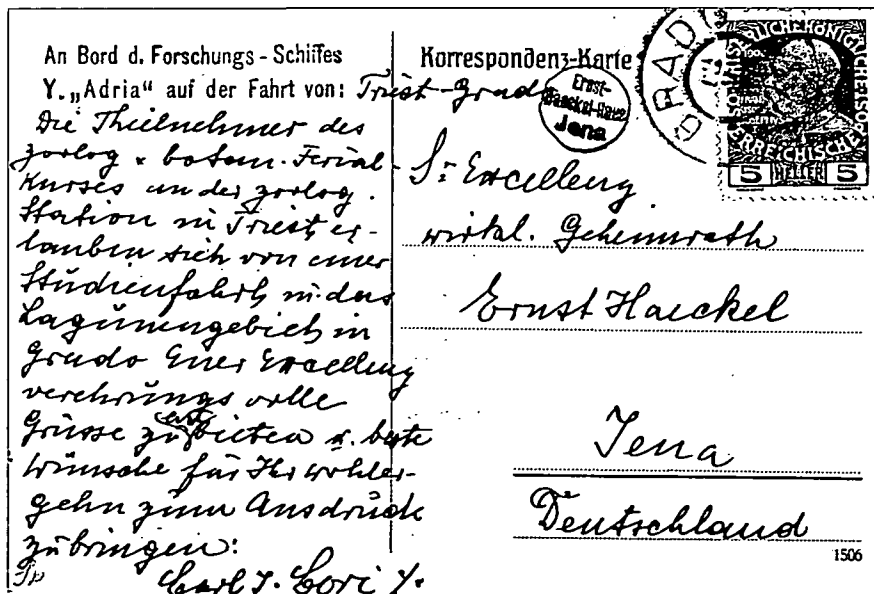 An Bord d. Forschungs-Schiffes
Y. „Adria“ auf der Fahrt von: Triest-Grado
Die Theilnehmer des
zoolog. botan. Ferial-
Kurses an der zoolog.
Station in Triest er-
lauben sich von einer
Studienfahrt in das
Lagunengebiet in
Grado Euer Excellenz
verehrungsvolle
Grüsse zu bieten u. beste
Wünsche für Ihr Wohler-
gehn zum Ausdruck
zu bringen:
Carl I. Cori
Korrespondenz-Karte
Ernst-
Haeckel-Haus
Jena
GRAD
KAISERLICHE KÖNIGLICHE ÖSTERREICHISCHE
5 HELLER 5
Sr Excellenz
wirkl. Geheimrath
Ernst Haeckel
Jena
Deutschland
1506